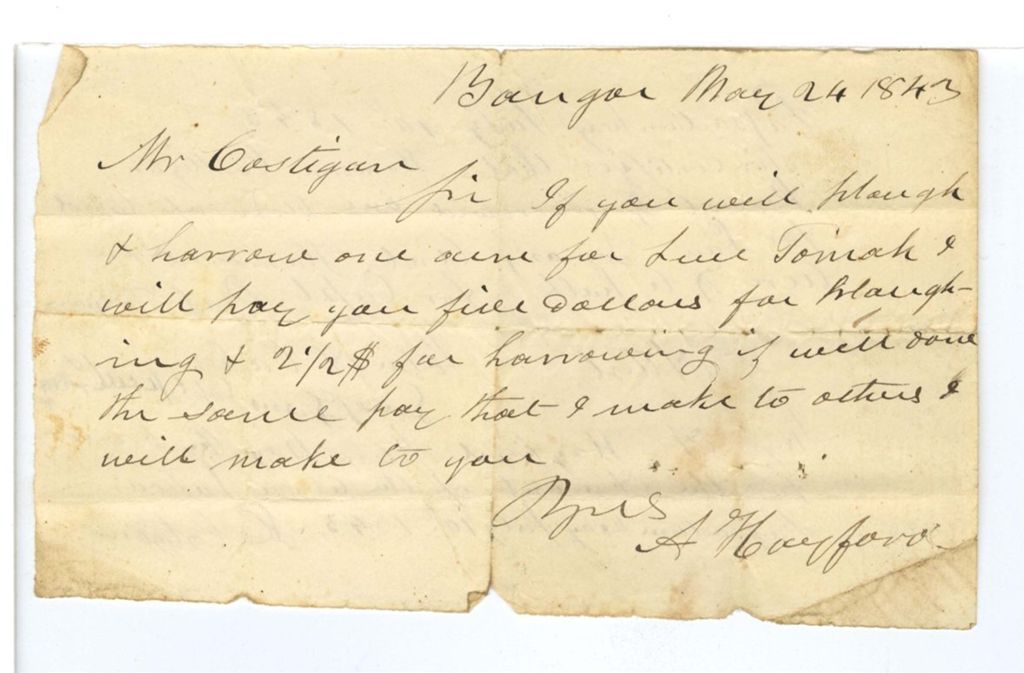 Bangor May 24 1843
Mr Costigan
Sir If you will plough
& harrow one acre for Tomah I
will pay you five dollars for plough-
ing & 2 1/2 $ for harrowing if well done
the same pay that I make to others I
will make to you
A Hayford